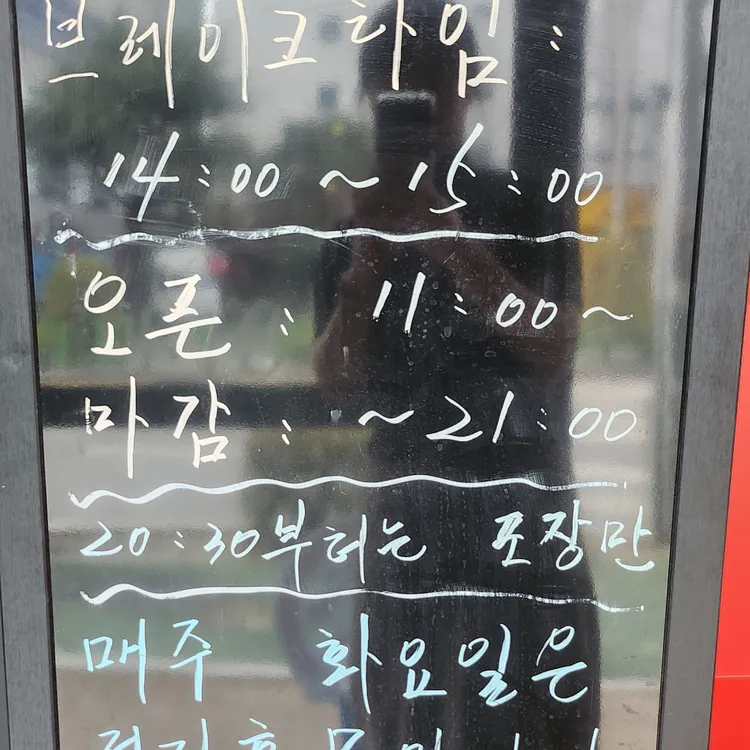 브레이크타임 :
14:00 ~ 15:00
오픈 : 11:00 ~
마감 : ~ 21:00
20:30부터는 포장만
매주 화요일은